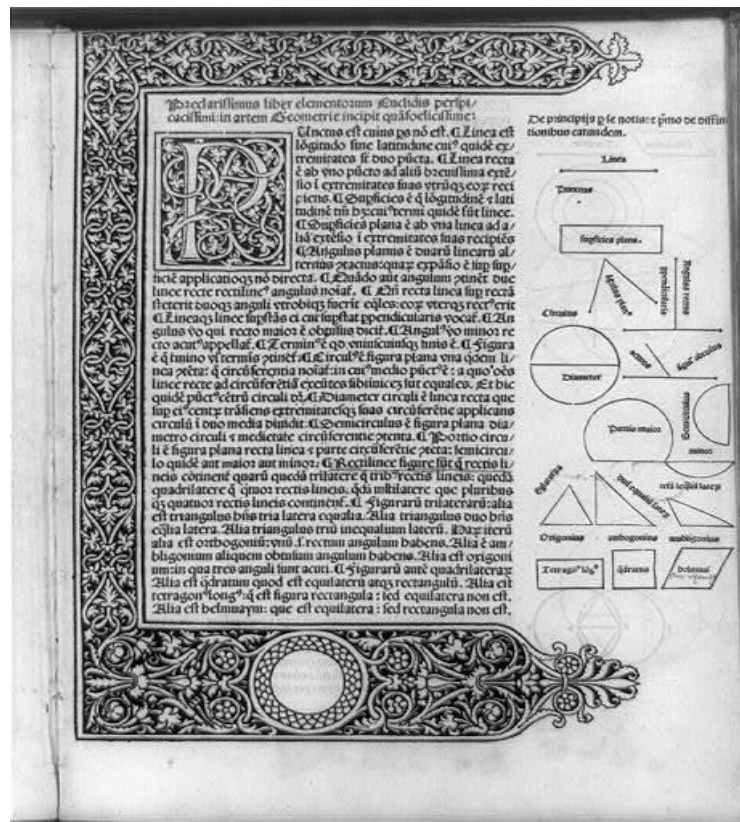 Preclarissimus liber elementorum Euclidis perspi/
cacissimi: in artem Geometrie incipit quãfoelicissime:
Punctus est cuius ps nõ est. ¶ Linea est
lõgitudo sine latitudine cuiꝰ quidẽ ex/
tremitates sũt duo pũcta. ¶ Linea recta
ẽ ab vno pũcto ad aliũ breuissima extẽ/
sio ĩ extremitates suas vtrũqꝫ eoꝝ reci
piens. ¶ Supficies ẽ q̃ lõgitudinẽ ⁊ lati
tudinẽ tm̃ hꝫ: cuiꝰ termi quidẽ sũt linee.
¶ Supficies plana ẽ ab vna linea ad a/
liã extẽsio ĩ extremitates suas recipiẽs
¶ Angulus planus ẽ duarũ linearũ al/
ternus ꝯtactus: quaꝝ expãsio ẽ sup sup/
ficiẽ applicatioqꝫ nõ directa. ¶ Quãdo aut angulum ꝯtinẽt due
linee recte rectilineꝰ angulus noĩat. ¶ Qñ recta linea sup rectã
steterit duoqꝫ anguli vtrobiqꝫ fuerĩt eq̃les: eoꝝ vterqꝫ rectꝰ erit
¶ Lineaqꝫ linee supstãs ei cui supstat ppendicularis vocat. ¶ An
gulus vo qui recto maior ẽ obtusus dicit. ¶ Angulꝰ vo minor re
cto acutꝰ appellat. ¶ Terminꝰ ẽ qd vniuscuiusqꝫ finis ẽ. ¶ Figura
ẽ q̃ tmino vl termis ꝯtinet. ¶ Circulꝰ ẽ figura plana vna qdem li/
nea ꝯtẽta: q̃ circũferentia noĩat: in cuiꝰ medio pũctꝰ ẽ: a quo oẽs
linee recte ad circũferẽtiã exeũtes sibiinuicẽ sunt equales. Et hic
quidẽ pũctꝰ cẽtrũ circuli dr. ¶ Diameter circuli ẽ linea recta que
sup eiꝰ centꝝ trãsiens extremitatesqꝫ suas circũferẽtie applicans
circulũ ĩ duo media diuidit. ¶ Semicirculus ẽ figura plana dia/
metro circuli ⁊ medietate circũferentie ꝯtenta. ¶ Portio circu/
li ẽ figura plana recta linea ⁊ parte circũferẽtie ꝯtẽta: semicircu/
lo quidẽ aut maior aut minor. ¶ Rectilinee figure sũt q̃ rectis li/
neis cõtinent quarũ quedã trilatere q̃ tribꝰ rectis lineis: quedã
quadrilatere q̃ q̃tuor rectis lineis. qdã mltilatere que pluribus
qꝫ quatuor rectis lineis continent. ¶ Figurarũ trilaterarũ: alia
est triangulus hñs tria latera equalia. Alia triangulus duo hñs
eq̃lia latera. Alia triangulus triũ inequalium laterũ. Haꝝ iterũ
alia est orthogoniũ: vnũ .s. rectum angulum habens. Alia ẽ am/
bligonium aliquem obtusum angulum habens. Alia est oxigoni
um: in qua tres anguli sunt acuti. ¶ Figurarũ autẽ quadrilateraꝝ
Alia est q̃dratum quod est equilaterũ atqꝫ rectangulũ. Alia est
tetragonꝰ longꝰ: q̃ est figura rectangula: sed equilatera non est.
Alia est helmuaym: que est equilatera: sed rectangula non est.
De principijs p se notis: ⁊ pmo de diffini
tionibus earundem.
Linea
Punctus
supficies plana.
Circulus
ppendicularis
Angulus rectus
Diameter
acutus
Portio maior
Semicirculus
minor
Oxigonius
orthogonius
ambligonius
Tetragonꝰ lõgꝰ
q̃dratus
helmuaym